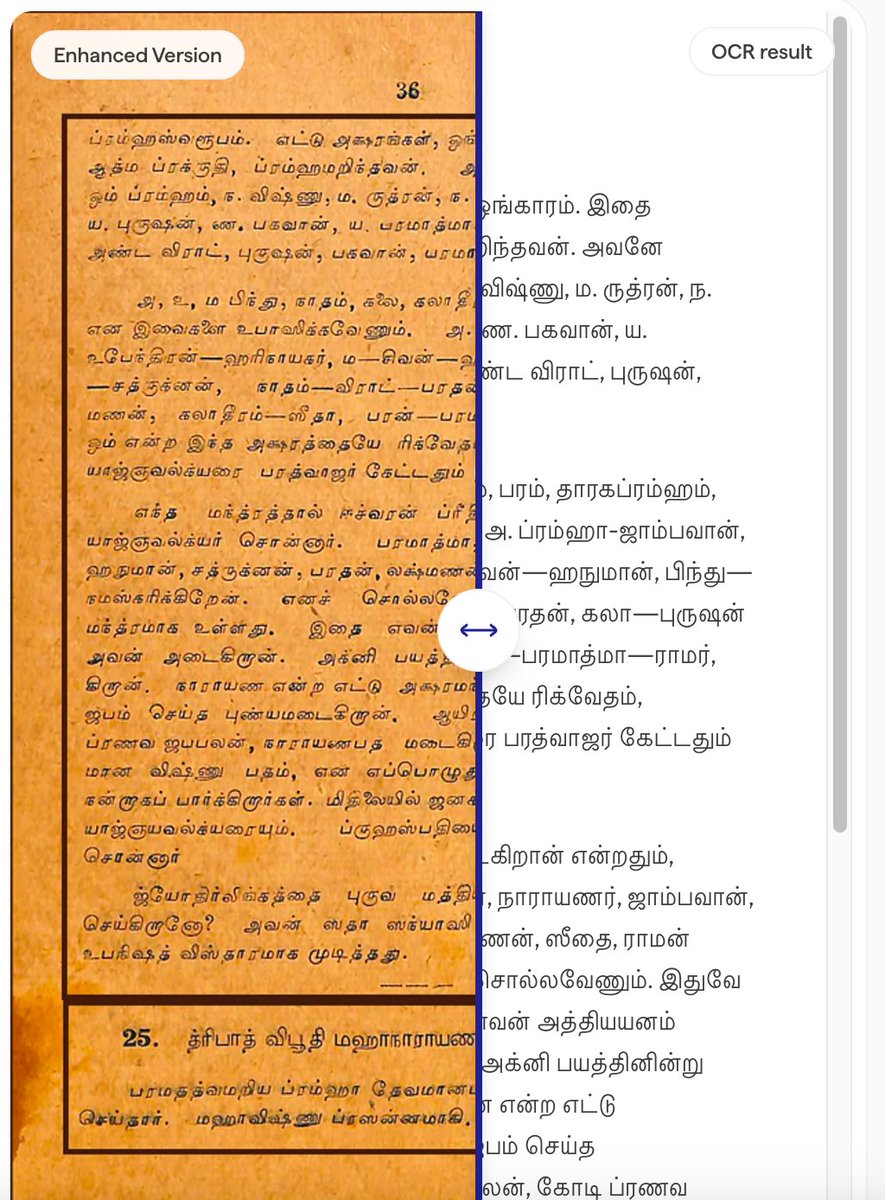 Enhanced Version
OCR result
36
ப்ரம்ஹஸ்வரூபம். எட்டு அக்ஷரங்கள்,
ஆத்ம ப்ரக்ருதி, ப்ரம்ஹமறிந்தவன்.
ஓம் ப்ரம்ஹம், ந. விஷ்ணு, ம. ருத்ரன், ந.
ய. புருஷன், ண. பகவான், ய. பரமாத்மா
அண்ட விராட், புருஷன், பகவான், பரமா
அ, உ, ம பிந்து, நாதம், கலை, கலாதீ
என இவைகளை உபாஸிக்கவேணும். அ.
உபேந்திரன்—ஹரிநாயகர், ம—சிவன்—
—சத்ருக்னன், நாதம்—விராட்—பரதன்
மணன், கலாதீரம்—ஸீதா, பரன்—பரம
ஓம் என்ற இந்த அக்ஷரத்தையே ரிக்வேத
யாஜ்ஞவல்க்யரை பரத்வாஜர் கேட்டதும்
எந்த மந்த்ரத்தால் ஈச்வரன் ப்ரீதி
யாஜ்ஞவல்க்யர் சொன்னார். பரமாத்மா
ஹநுமான், சத்ருக்னன், பரதன், லக்ஷ்மணன்
நமஸ்கரிக்கிறேன். எனச் சொல்ல
மந்த்ரமாக உள்ளது. இதை எவன்
அவன் அடைகிறான். அக்னி பயத்
கிறான். நாராயண என்ற எட்டு அக்ஷரம
ஜபம் செய்த புண்யமடைகிறான். ஆயி
ப்ரணவ ஜபபலன், நாராயணபத மடைகி
மான விஷ்ணு பதம், என எப்பொழுது
நன்றாகப் பார்க்கிறார்கள். மிதிலையில் ஜனக
யாஜ்ஞயவல்க்யரையும். ப்ருஹஸ்பதியை
சொன்னார்
ஜ்யோதிர்லிங்கத்தை புருவ மத்தி
செய்கிறானோ? அவன் ஸதா ஸந்யாஸி
உபநிஷத் விஸ்தாரமாக முடித்தது.
25. த்ரிபாத் விபூதி மஹாநாராயண
பரமதத்வமறிய ப்ரம்ஹா தேவமான
செய்தார். மஹாவிஷ்ணு ப்ரஸன்னமாகி.
ஓங்காரம். இதை
றிந்தவன். அவனே
விஷ்ணு, ம. ருத்ரன், ந.
ண. பகவான், ய.
ண்ட விராட், புருஷன்,
பரம், தாரகப்ரம்ஹம்,
அ. ப்ரம்ஹா-ஜாம்பவான்,
வன்—ஹநுமான், பிந்து—
ரதன், கலா—புருஷன்
—பரமாத்மா—ராமர்,
தயே ரிக்வேதம்,
ர பரத்வாஜர் கேட்டதும்
டகிறான் என்றதும்,
, நாராயணர், ஜாம்பவான்,
ணன், ஸீதை, ராமன்
சொல்லவேணும். இதுவே
வன் அத்தியயனம்
அக்னி பயத்தினின்று
என்ற எட்டு
பம் செய்த
லன், கோடி ப்ரணவ